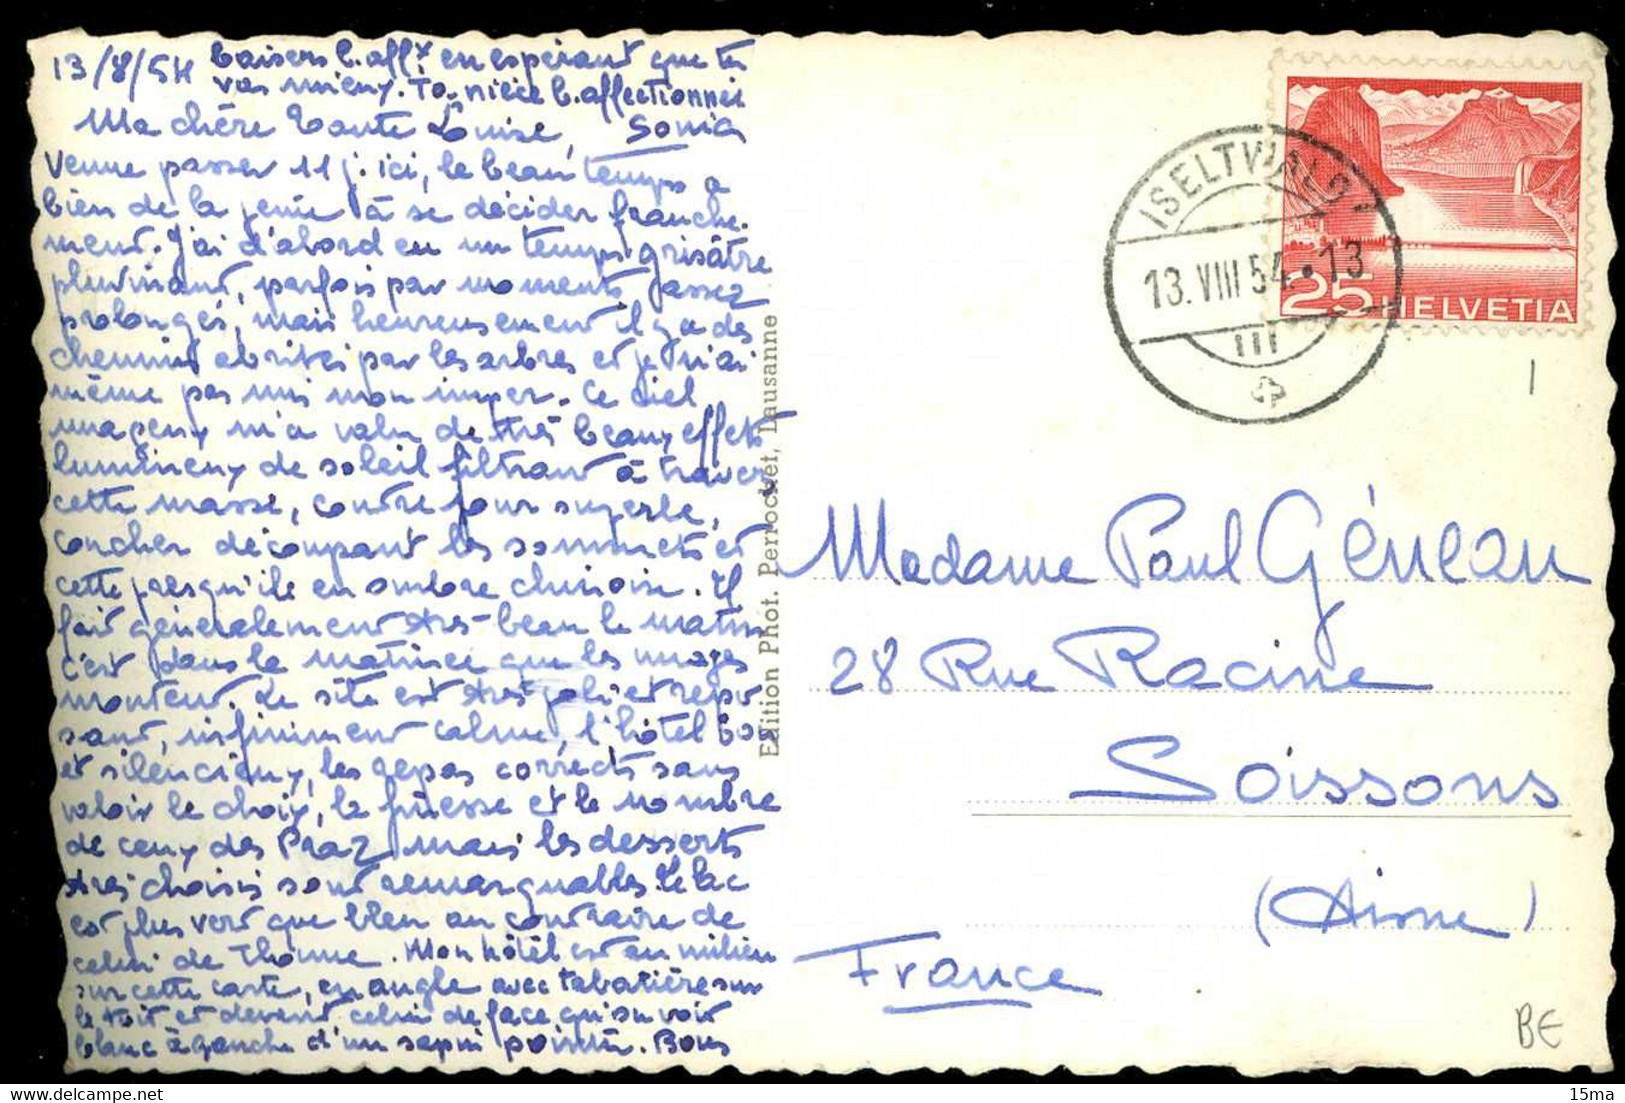 13/8/54
Ma chère Tante Luise,
Venue passer 11 j. ici, le beau temps a
bien de la peine à se décider franche-
ment. J'ai d'abord eu un temps grisâtre
pluvinant, parfois par moments assez
prolongés, mais heureusement il y a des
chemins abrités par les arbres et je n'ai
même pas mis mon imper. Ce ciel
nuageux m'a valu de très beaux effets
lumineux de soleil filtrant à travers
cette masse, contre jour superbe,
coucher découpant les sommets et
cette presqu'île en ombre chinoise. Il
fait généralement très beau le matin
c'est dans la matinée que les nuages
montent. Le site est très joli et repo
sant, infiniment calme, l'hôtel bon
et silencieux, les repas corrects sans
valoir le choix, la finesse et le nombre
de ceux des Praz mais les desserts
très choisis sont remarquables. Le lac
est plus vert que bleu au contraire de
celui de Thoune. Mon hôtel est au milieu
sur cette carte, en angle avec tabatière sur
le toit et devant celui de face qu'on voit
blanc à gauche d'un sapin pointu. Bons
baisers b. aff.x en espérant que tu
vas mieux. Ta nièce b. affectionnée
Sonia
Edition Phot. Perrochet, Lausanne
ISELTWALD
13.VIII 54.·13
25 HELVETIA
Madame Paul Géneau
28 Rue Racine
Soissons
(Aisne)
France
BE
15ma